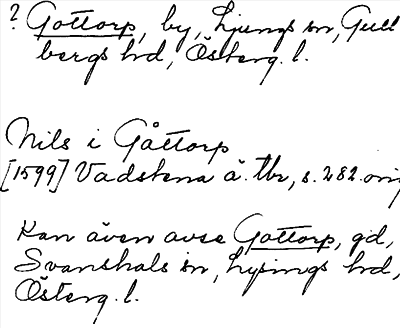 ? Gottorp, by, Ljungs sn, Gull
bergs hd, Österg. l.
Nils i Gåttorp
[1599] Vadstena ä. tbr, s. 282. orig
Kan även avse Gottorp, gd,
Svanshals sn, Lysings hd,
Österg. l.